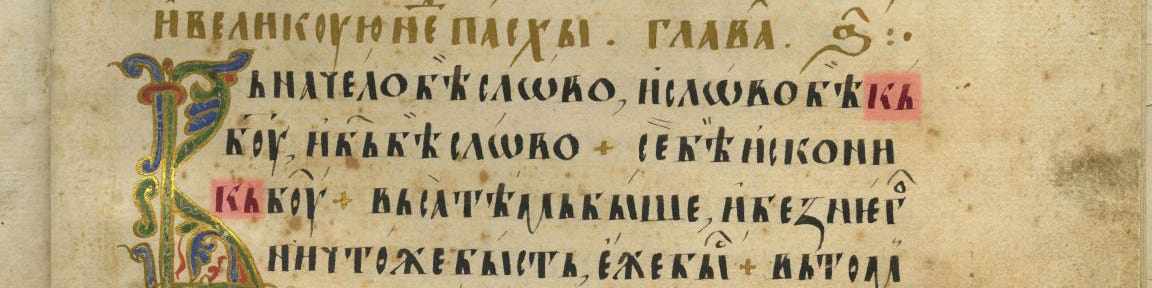 и҆великоую не҃ пасхы . глава҃ . ѕ҃ :·
Вьначело бѣ слѡво, и҆слѡвобѣ кь
б҃оу, и҆б҃ь бѣ слѡво + се́ бѣ и҆скони
кь б҃оу + вьса̀ тѣмь быше, и҆безнѥго
ничтоже бысть, є҆же бы + вьтом